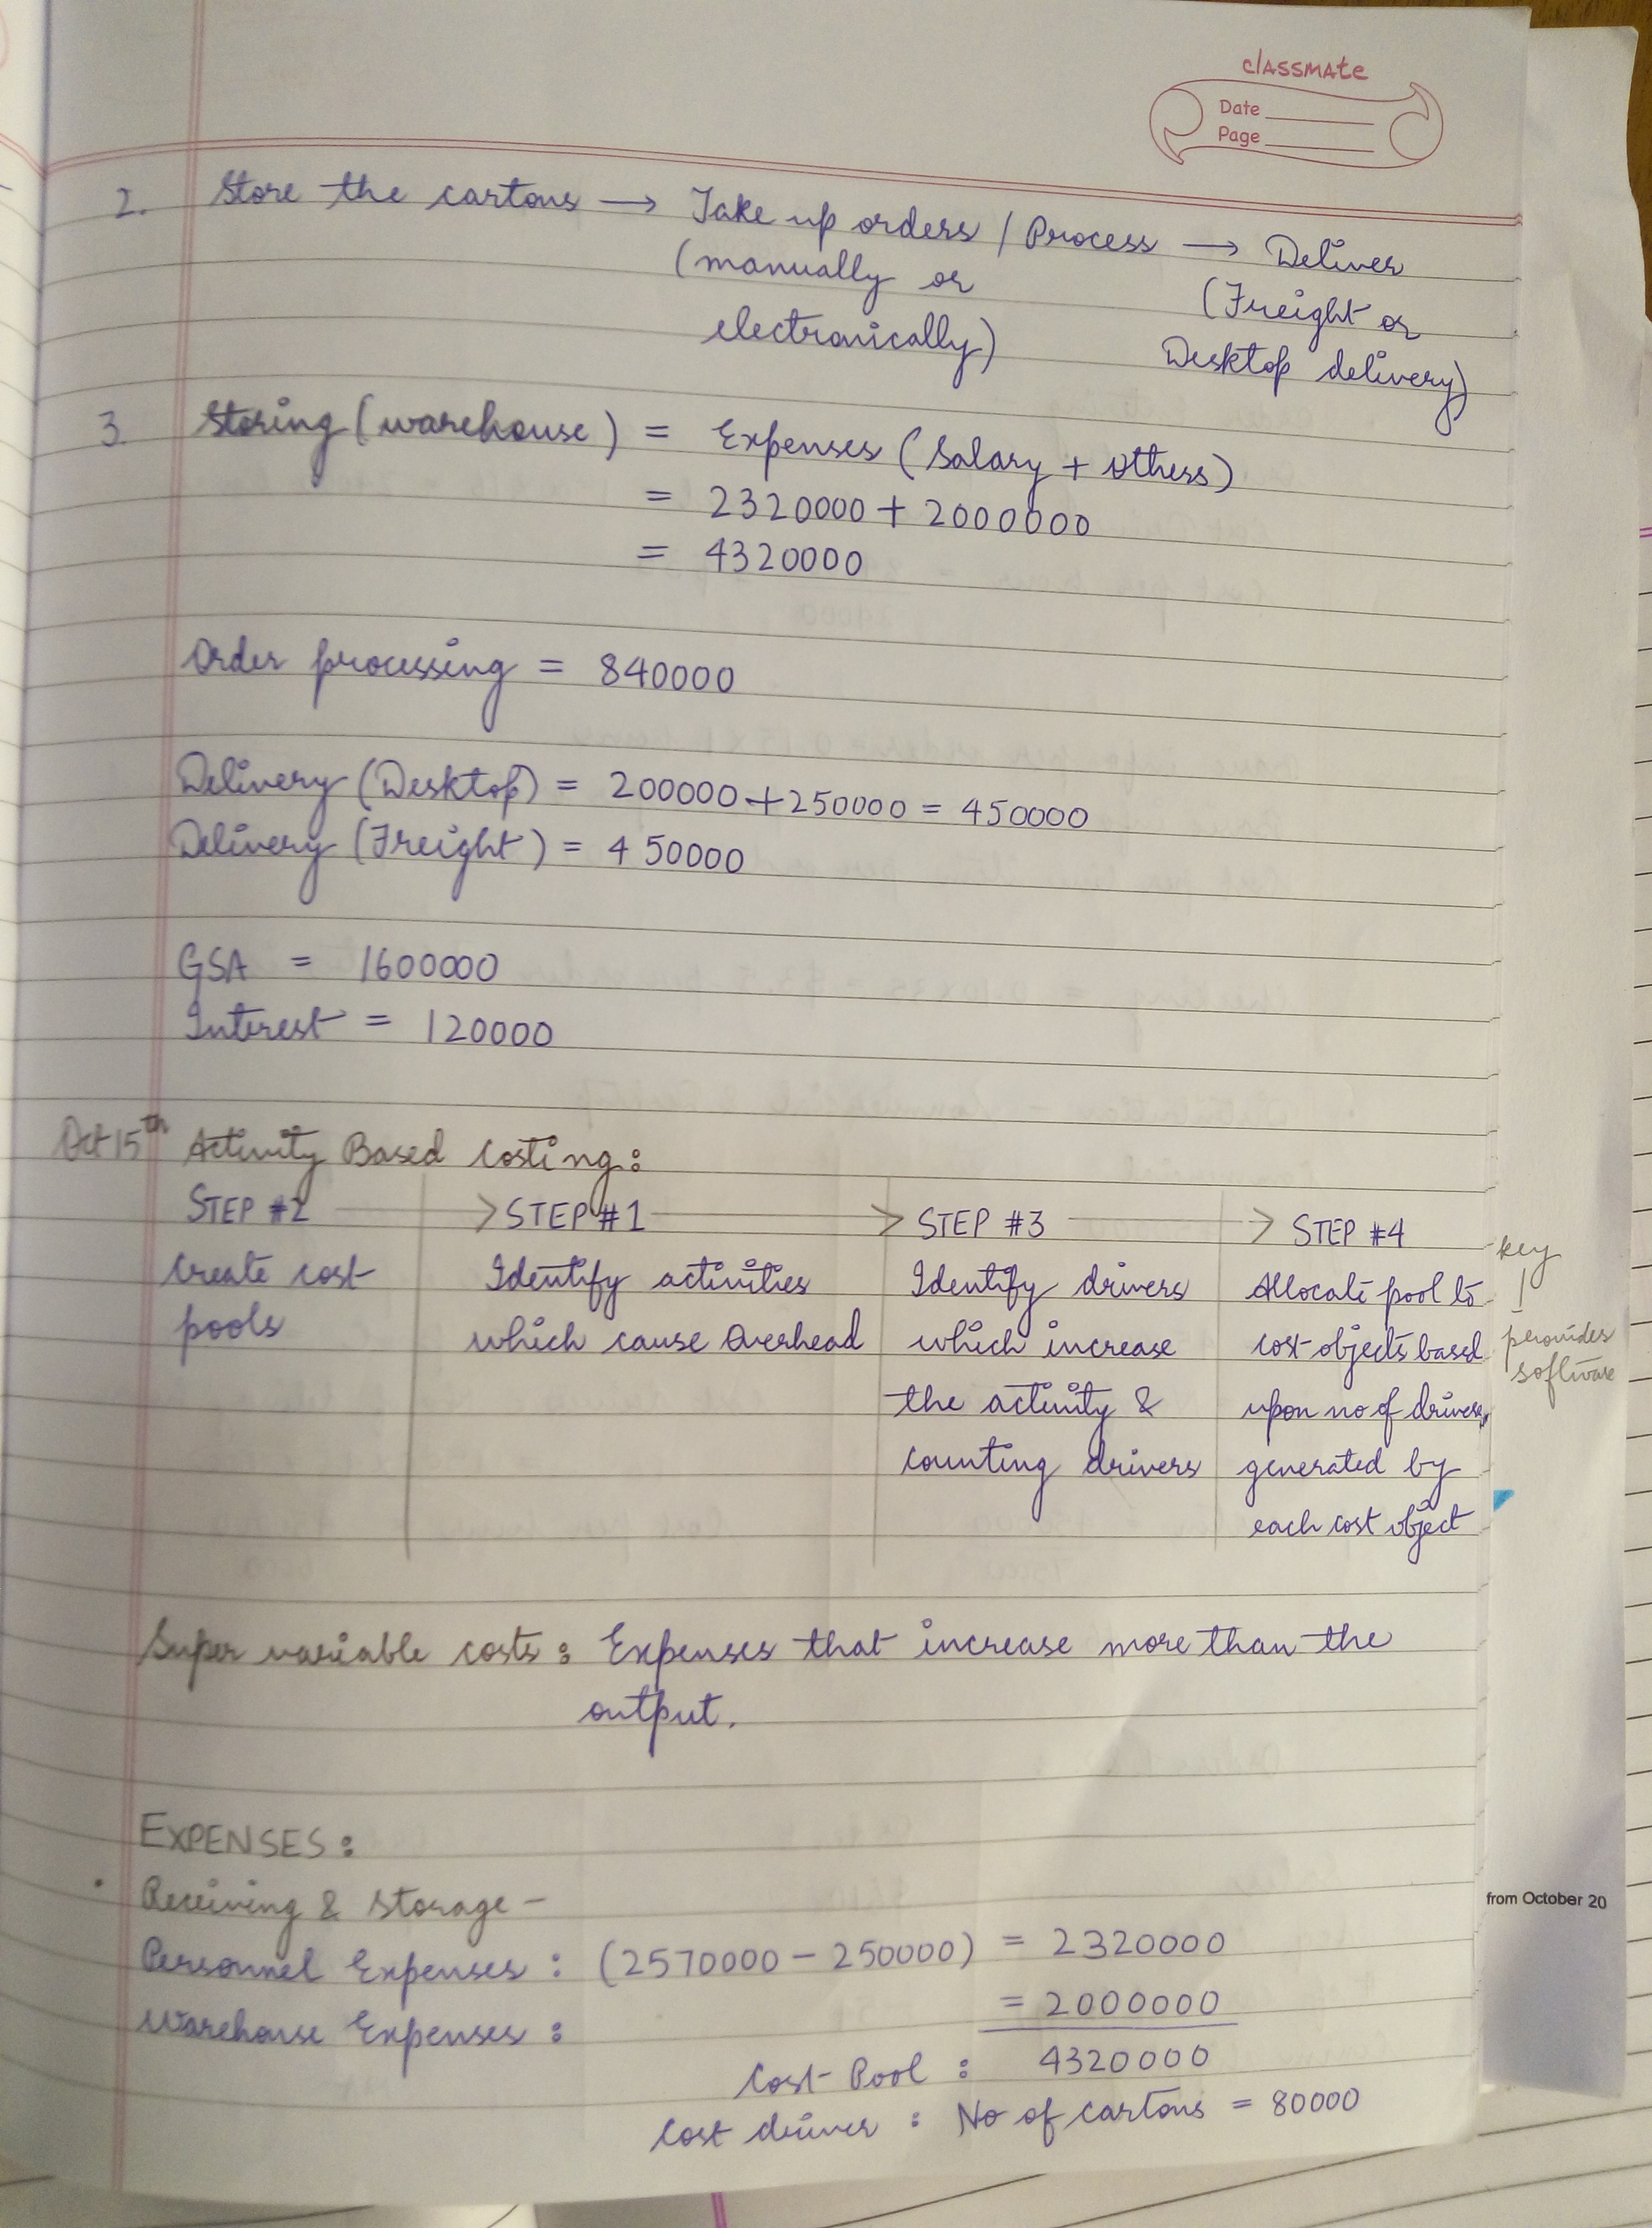 classmate
Date
Page
2. Store the cartons → Take up orders / Process → Deliver
(manually or
electronically)
(Freight or
Desktop delivery)
3. Storing (warehouse) = Expenses (Salary + Others)
= 2320000 + 2000000
= 4320000
Order processing = 840000
Delivery (Desktop) = 200000 + 250000 = 450000
Delivery (Freight) = 450000
GSA = 1600000
Interest = 120000
Oct 15th Activity Based Costing:
STEP #2 → STEP #1 → STEP #3 → STEP #4
Create cost
pools
Identify activities
which cause Overhead
Identify drivers
which increase
the activity &
counting drivers
Allocate pool to
cost objects based
upon no of drivers
generated by
each cost object
key
provides
software
Super variable costs: Expenses that increase more than the
output.
EXPENSES:
• Receiving & Storage -
Personnel Expenses: (2570000 - 250000) = 2320000
Warehouse Expenses: = 2000000
Cost Pool: 4320000
Cost driver: No of cartons = 80000
from October 20